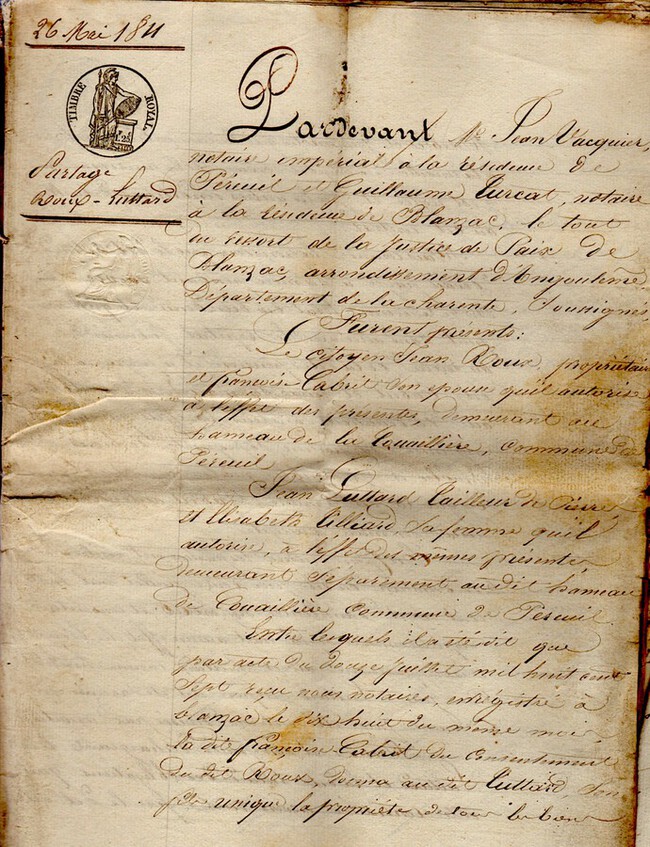 26 Mai 1811
TIMBRE ROYAL.
Partage
Roux - Luttard
Pardevant Me Jean Vacquier,
notaire impérial à la résidence de
Péreuil et Guillaume Turcat, notaire
à la résidence de Blanzac, le tout
du ressort de la Justice de Paix de
Blanzac, arrondissement d'Angoulême,
Département de la Charente, soussignés,
Furent présents:
Le citoyen Jean Roux, propriétaire
et françoise Cabrit son epouse qu'il autorise
à l'effet des présentes, demeurant au
hameau de la Touaillière, commune de
Péreuil
Jean Luttard tailleur de Pierres
et Elisabeth Tilliard, sa femme qu'il
autorise, à l'effet des mêmes présentes
demeurant séparement au dit hameau
de Touaillière commune de Péreuil.
Entre lesquels il a été dit que
par acte du douze juillet mil huit cent
sept, reçu nous notaires, enrégistré à
blanzac le dix huit du même mois,
la dite françoise Cabrit du consentement
du dit Roux, donna au dit son
fils unique la propriété de tous les biens